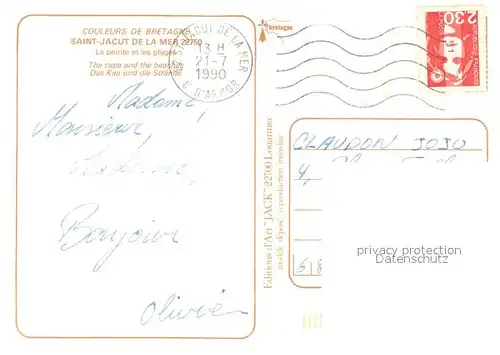 COULEURS DE BRETAGNE
SAINT-JACUT DE LA MER 22750
La pointe et les plages
The cape and the beaches
Das Kap und die Strände
JACUT DE LA MER
13 H
21-7
1990
C. D'ARMOR
bretagne
2,30
Madame,
Monsieur,
Bonjour
Olivier
Editions d'Art "JACK" 22700 Louannec
modèle déposé reproduction interdite
CLAUDON JOJO
4,
68
privacy protection
www.ansichtskarten-center.de